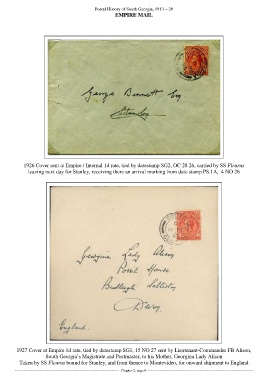 Postal History of South Georgia, 1911 – 28
EMPIRE MAIL
George Bennett Esq
Stanley
1926 Cover sent at Empire / Internal 1d rate, tied by datestamp SG2, OC 28 26, carried by SS Fleurus
leaving next day for Stanley, receiving there an arrival marking from date stamp PS.1A, 4 NO 26
Georgina Lady Alison
Possil House
Budleigh Salterton
Devon
England.
1927 Cover at Empire 1d rate, tied by datestamp SG1, 15 NO 27 sent by Lieutenant-Commander FB Alison,
South Georgia's Magistrate and Postmaster, to his Mother, Georgina Lady Alison
Taken by SS Fleurus bound for Stanley, and from thence to Montevideo, for onward shipment to England